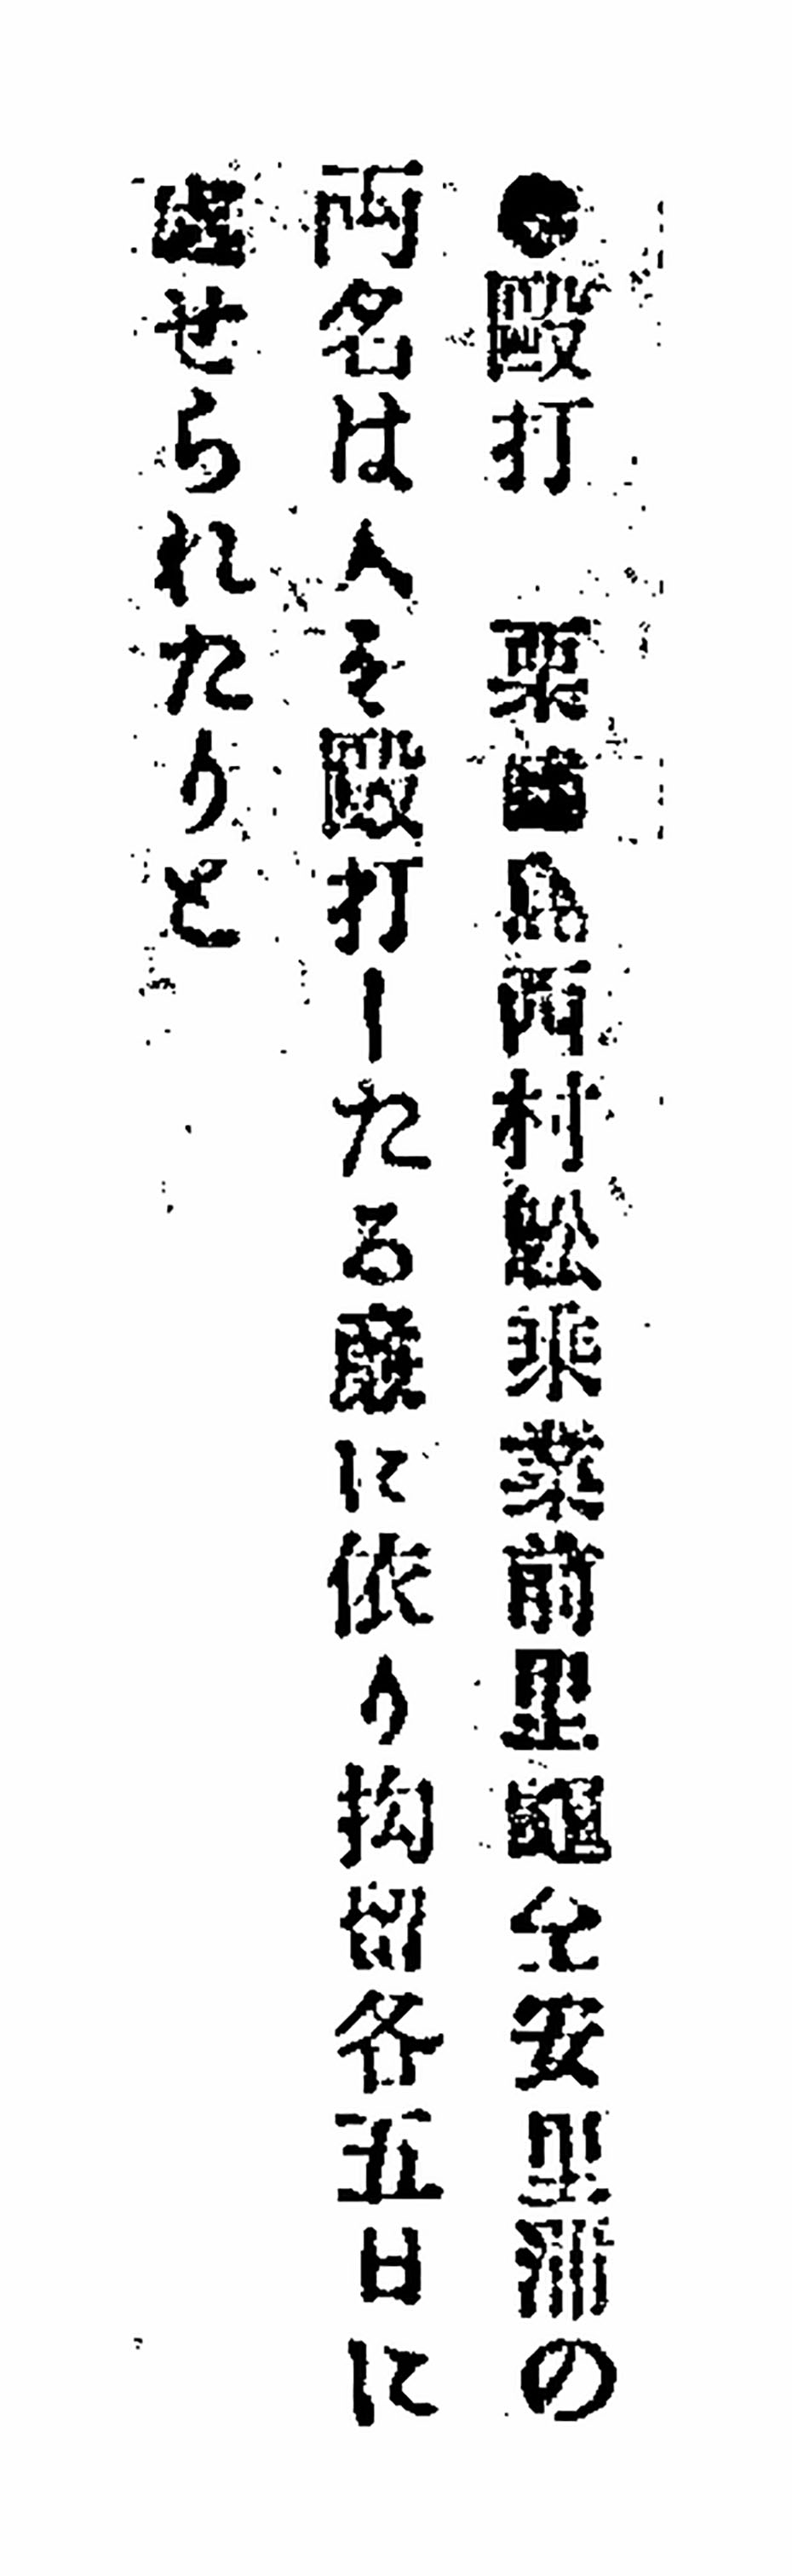 ●毆打　粟國島西村船乘業前里龜仝安里浦の
両名は人を毆打したる廉に依り拘留各五日に
處せられたりと